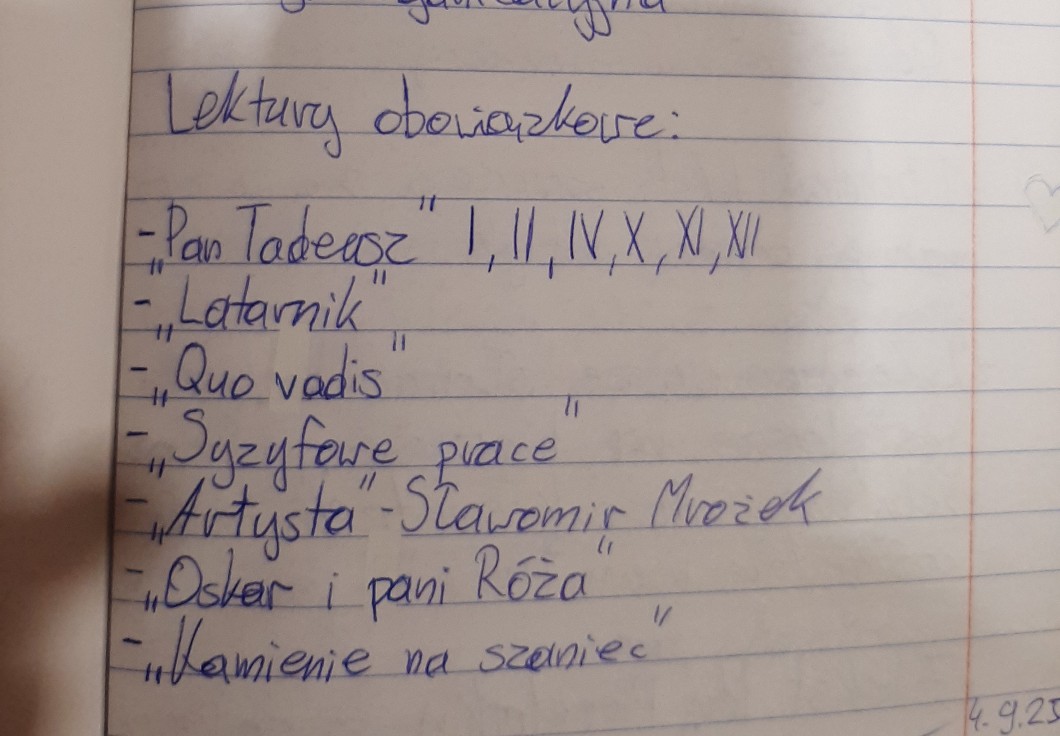 Lektury obowiązkowe:
- „Pan Tadeusz" I, II, IV, X, XI, XII
- „Latarnik"
- „Quo vadis"
- „Syzyfowe prace"
- „Artysta" - Sławomir Mrożek
- „Oskar i pani Róża"
- „Kamienie na szaniec"
4.9.25